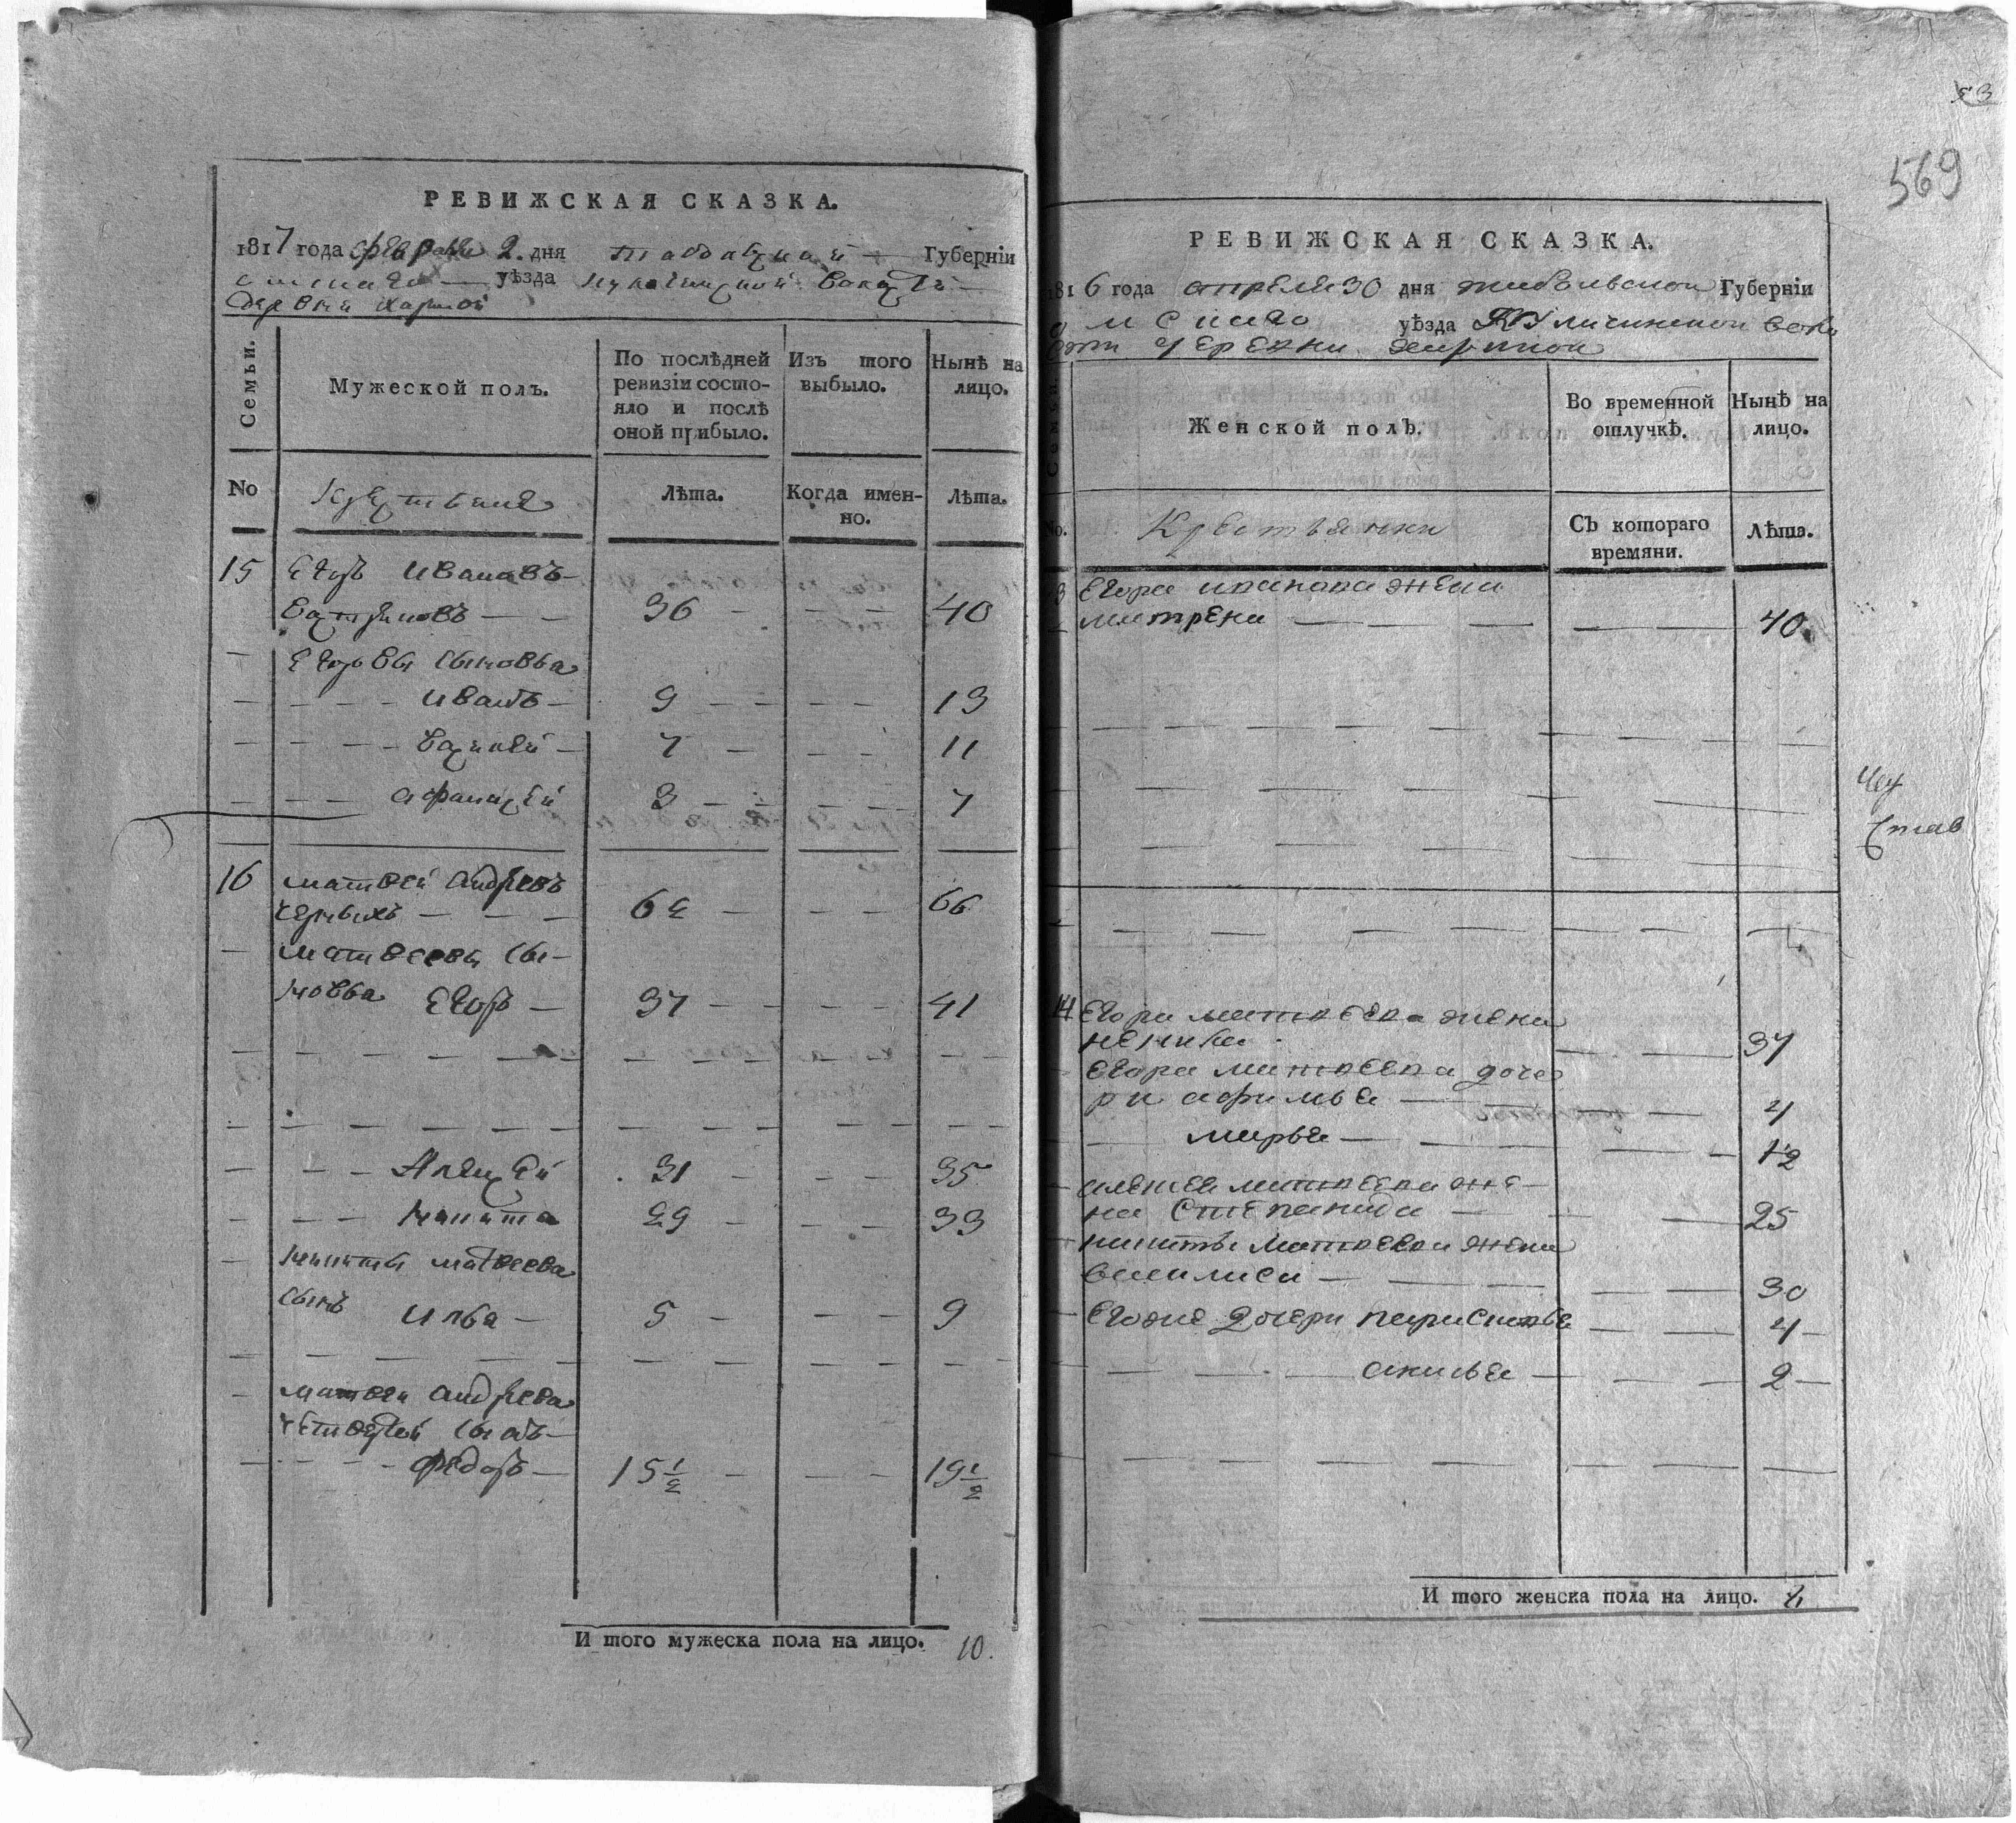 РЕВИЖСКАЯ СКАЗКА.
1817 года февраля 2 дня тобольской Губерніи
омскаго уѣзда волости
деревни
Семьи.
Мужеской полъ.
По послѣдней ревизіи состояло и послѣ оной прибыло.
Изъ того выбыло.
Нынѣ на лицо.
No
Крестьяне
Лѣта.
Когда именно.
Лѣта.
15 Егоръ Ивановъ
36 40
Егоровы сыновья
Иванъ 9 13
7 11
Афанасей 3 7
16 Матвей Андреевъ
Черныхъ 62 66
Матвеевы сы-
новья Егоръ 37 41
Алексей 31 35
Никита 29 33
Никиты Матвеева
сынъ Илья 5 9
Матвея Андреева
четвертой сынъ
Федоръ 15 1/2 19 1/2
И того мужеска пола на лицо. 10.
53
569
РЕВИЖСКАЯ СКАЗКА.
1816 года апреля 30 дня тобольской Губерніи
омскаго уѣзда воло
сти деревни
Женской полъ.
Во временной отлучкѣ.
Нынѣ на лицо.
No.
Крестьянки
Съ котораго времяни.
Лѣта.
Егора Иванова жена
Матрена 40
14 Егора Матвеева жена
37
Егора Матвеева доче
ри Афимья 4
Марья 12
Алексея Матвеева же-
на Степанида 25
Никиты Матвеева жена
Василиса 30
Егоже дочери 4
Акилья 2
И того женска пола на лицо.